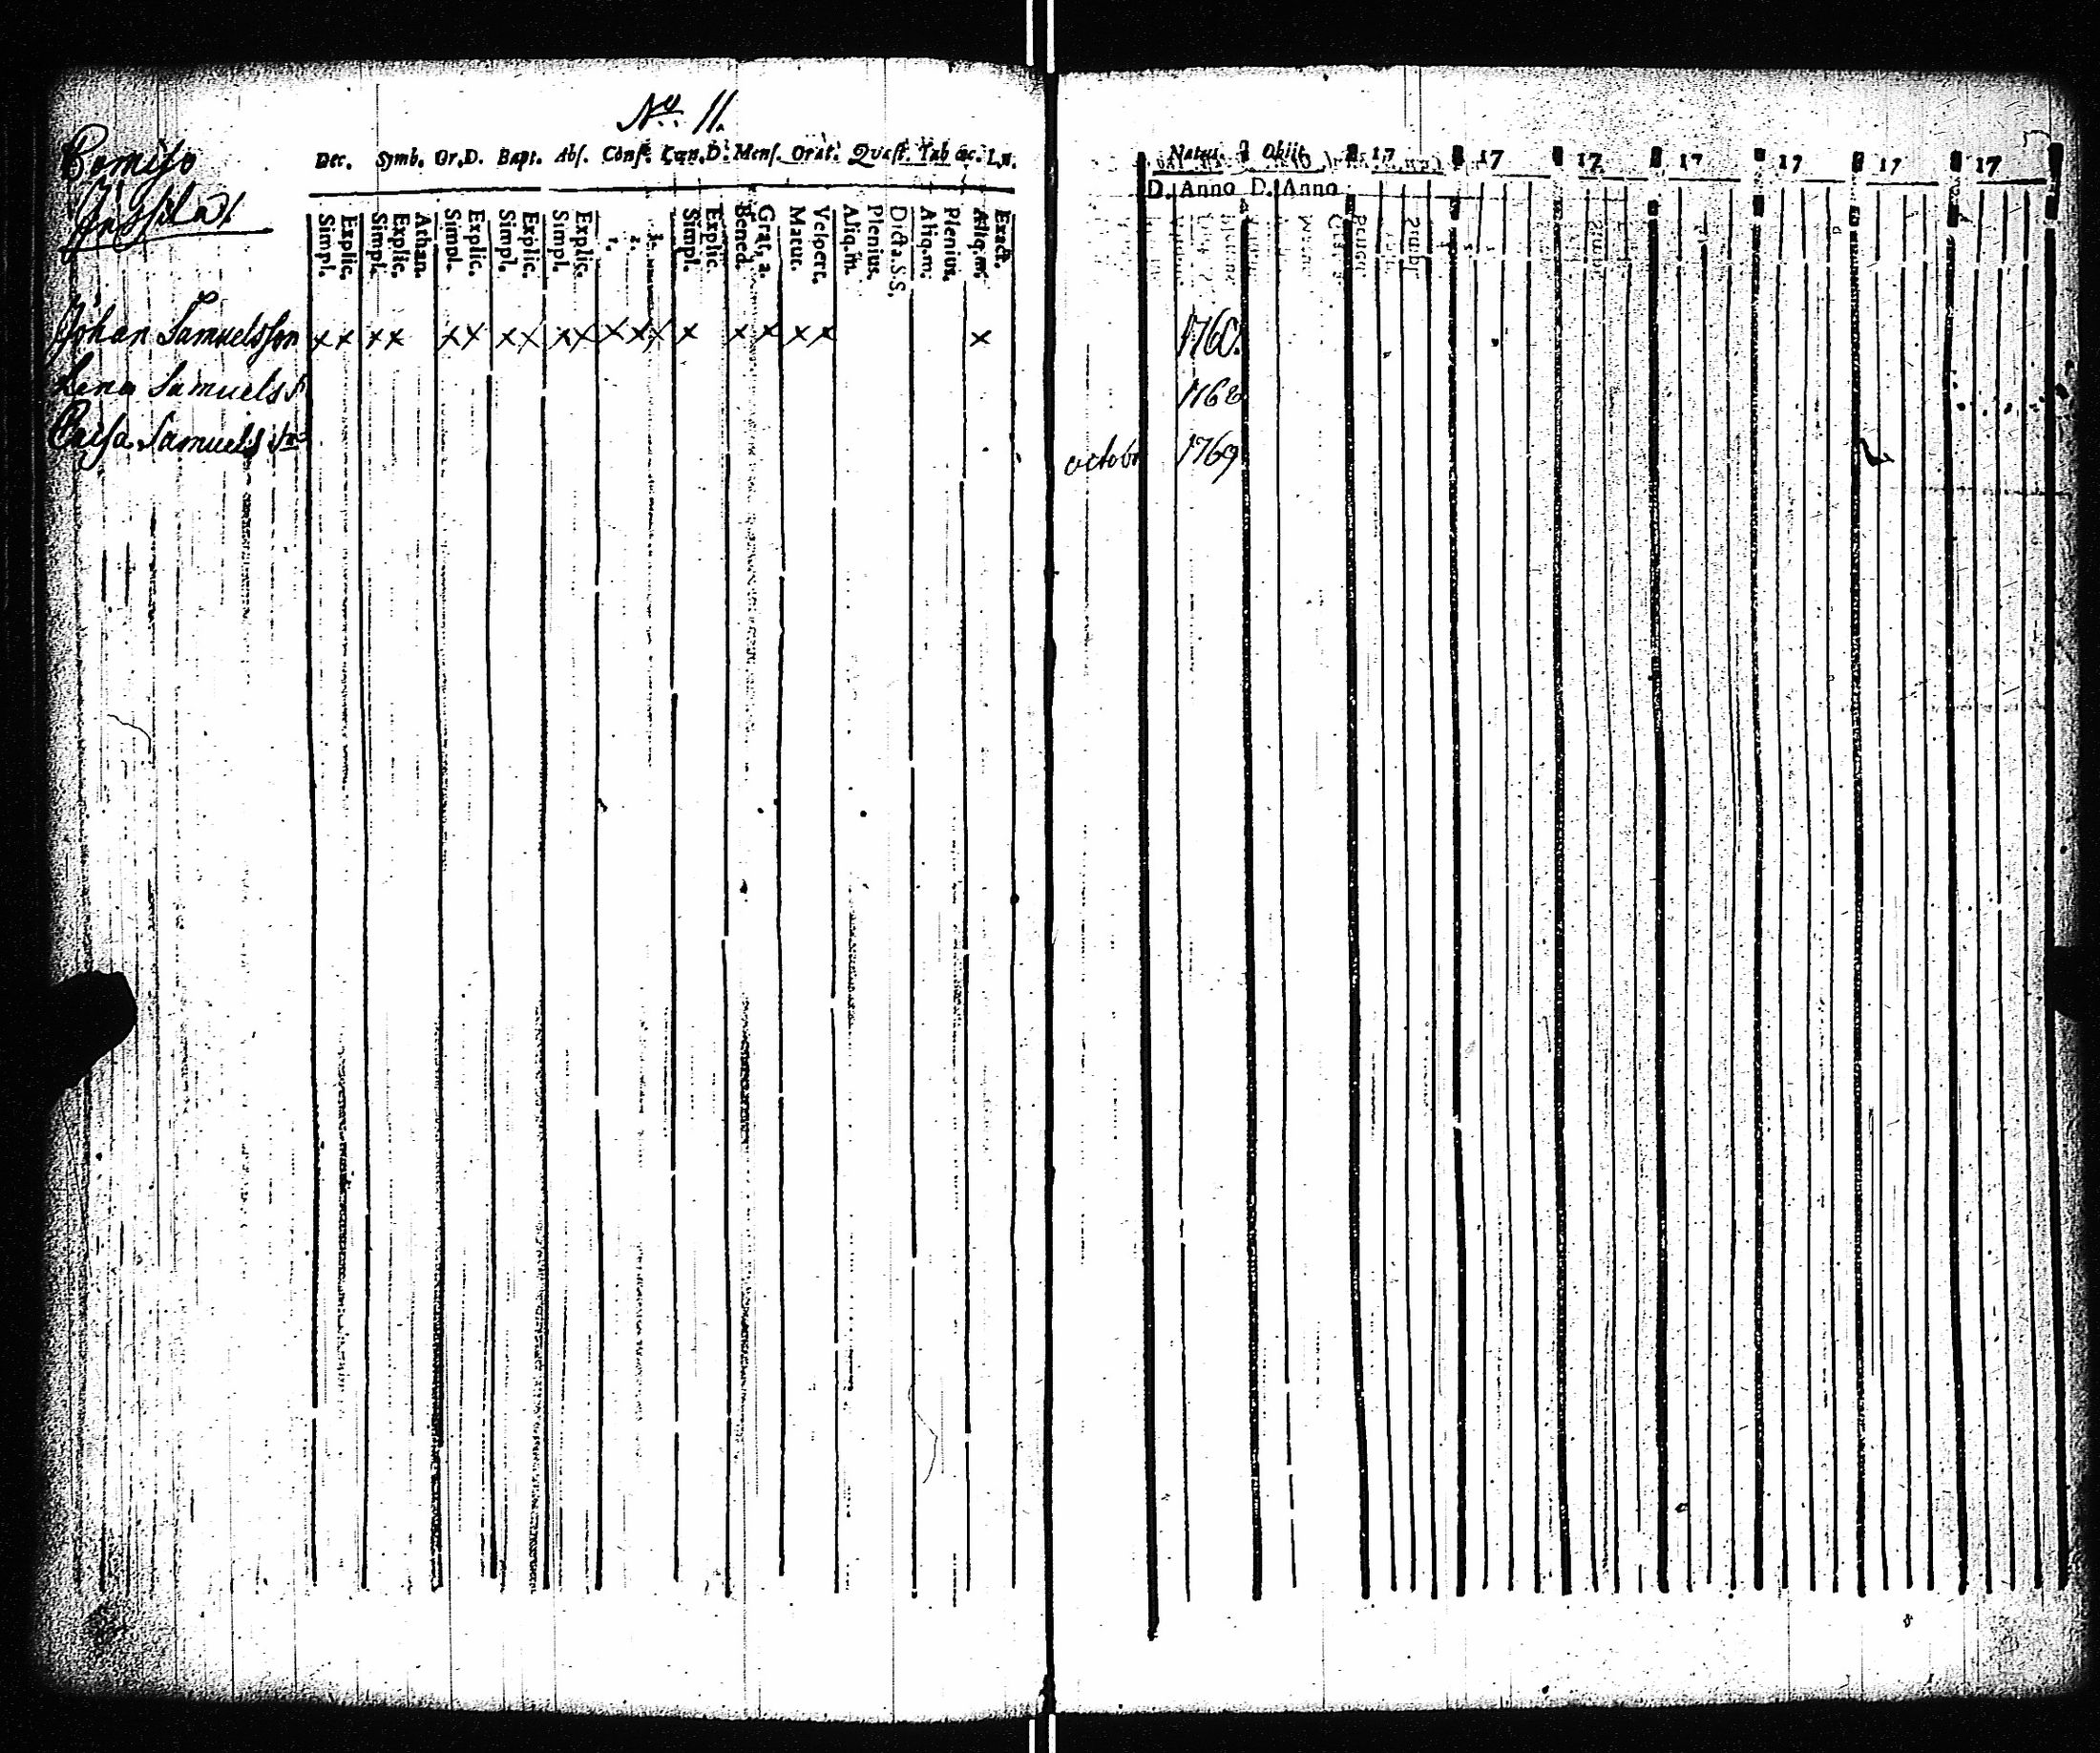 No. 11.
Dec. Symb. Or.D. Bapt. Abs. Conf. Cœn.D. Mens. Orat. Quæst. Tab œc. L.n.
Simpl. Explic. Simpl. Explic. Athan. Simpl. Explic. Simpl. Explic. Simpl. Explic. 1. 2. 3. Simpl. Explic. Bened. Grat. a. Matut. Vespert. Aliq.m. Plenius. Dicta.S.S. Aliq.m. Plenius. Aliq.m. Exact.
Johan Samuelsson x x x x x x x x x x x x x x x x x x x
Lena Samuels
Cajsa Samuels
Natus Obiit 17 17 17 17 17 17 17
D. Anno D. Anno
1760.
1768
octobr 1769